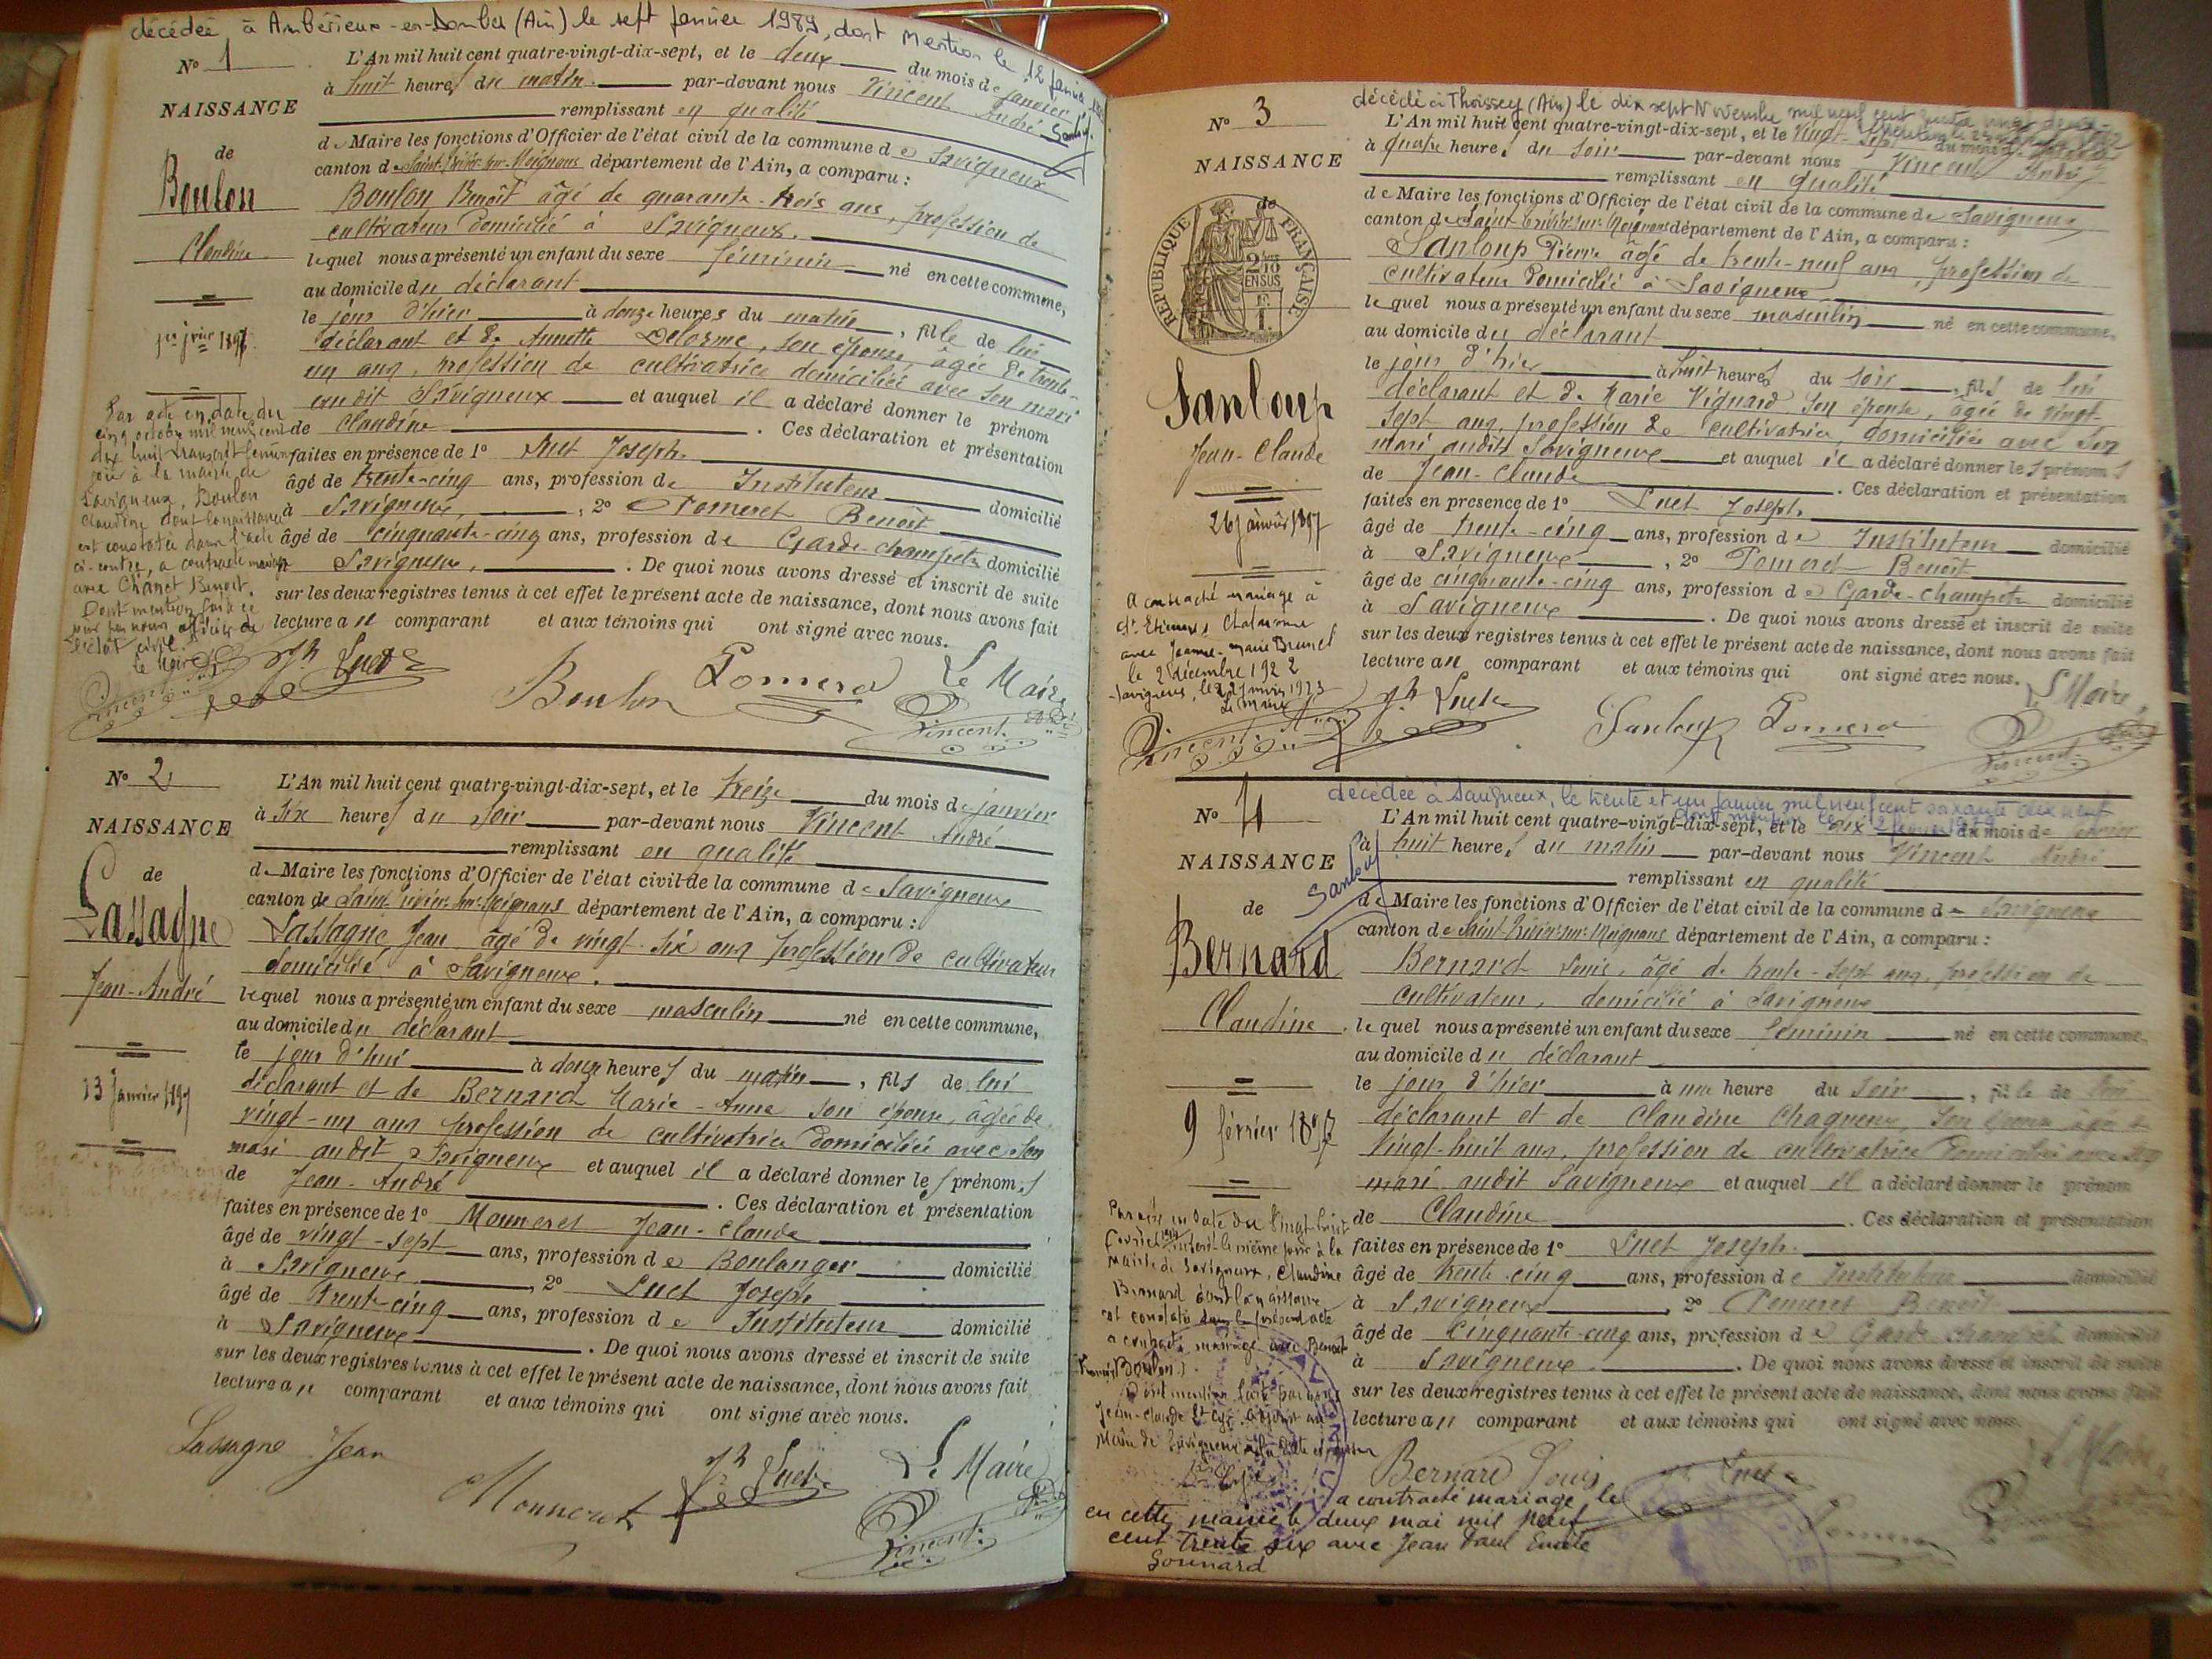 décédée à Ambérieux-en-Dombes (Ain) le sept janvier 1989, dont mention le 12 janvier
N° 1
NAISSANCE
de
Boulon
Claudine
1er jvier 1897
L'An mil huit cent quatre-vingt-dix-sept, et le deux du mois de janvier
à huit heures du matin par-devant nous Vincent André
remplissant en qualité
de Maire les fonctions d'Officier de l'état civil de la commune de Savigneux
canton de département de l'Ain, a comparu :
Boulon Benoît âgé de quarante-trois ans, profession de
cultivateur domicilié à Savigneux.
lequel nous a présenté un enfant du sexe féminin né en cette commune,
au domicile du déclarant
le jour d'hier à heures du matin, fille de lui
déclarant et de Annette Delorme, son épouse, âgée de trente-
un ans, profession de cultivatrice domiciliée avec son mari
audit Savigneux et auquel il a déclaré donner le prénom
de Claudine. Ces déclaration et présentation
faites en présence de 1° Luet Joseph
âgé de trente-cinq ans, profession de Instituteur domicilié
à Savigneux, 2° Pomeret Benoît
âgé de cinquante-cinq ans, profession de Garde-champêtre domicilié
à Savigneux. De quoi nous avons dressé et inscrit de suite
sur les deux registres tenus à cet effet le présent acte de naissance, dont nous avons fait
lecture au comparant et aux témoins qui ont signé avec nous.
Par acte en date du
cinq octobre mil neuf cent
dix huit transcrit le même
jour à la mairie de
Savigneux, Boulon
Claudine dont la naissance
est constatée dans l'acte
ci-contre, a contracté mariage
avec Chanet Benoit.
Dont mention faite ce
jour par nous officier de
l'état civil.
le Maire
Jh Luet Boulon Pomera Le Maire
Vincent
N° 2
NAISSANCE
de
Lassagne
Jean-André
13 janvier 1897
L'An mil huit cent quatre-vingt-dix-sept, et le treize du mois de janvier
à six heures du soir par-devant nous Vincent André
remplissant en qualité
de Maire les fonctions d'Officier de l'état civil de la commune de Savigneux
canton de département de l'Ain, a comparu :
Lassagne Jean âgé de vingt-six ans profession de cultivateur
domicilié à Savigneux.
lequel nous a présenté un enfant du sexe masculin né en cette commune,
au domicile du déclarant
le jour d'hui à heures du matin, fils de lui
déclarant et de Bernard Marie-Anne son épouse, âgée de
vingt-un ans profession de cultivatrice domiciliée avec son
mari audit Savigneux et auquel il a déclaré donner les prénoms
de Jean-André. Ces déclaration et présentation
faites en présence de 1° Monneret Jean-Claude
âgé de vingt-sept ans, profession de Boulanger domicilié
à Savigneux, 2° Luet Joseph
âgé de trente-cinq ans, profession de Instituteur domicilié
à Savigneux. De quoi nous avons dressé et inscrit de suite
sur les deux registres tenus à cet effet le présent acte de naissance, dont nous avons fait
lecture au comparant et aux témoins qui ont signé avec nous.
Lassagne Jean
Monneret Jh Luet Le Maire
Vincent
décédé à Thoissey (Ain) le dix sept Novembre mil neuf cent
N° 3
NAISSANCE
de
REPUBLIQUE FRANÇAISE
Sanloup
Jean-Claude
26 janvier 1897
L'An mil huit cent quatre-vingt-dix-sept, et le vingt-sept du mois de janvier
à quatre heures du soir par-devant nous Vincent André
remplissant en qualité
de Maire les fonctions d'Officier de l'état civil de la commune de Savigneux
canton de département de l'Ain, a comparu :
Sanloup Pierre âgé de trente-neuf ans, profession de
cultivateur domicilié à Savigneux
lequel nous a présenté un enfant du sexe masculin né en cette commune,
au domicile du déclarant
le jour d'hier à huit heures du soir, fils de lui
déclarant et de Marie Vignard son épouse, âgée de vingt-
sept ans, profession de cultivatrice, domiciliée avec son
mari audit Savigneux et auquel il a déclaré donner les prénoms
de Jean-Claude. Ces déclaration et présentation
faites en présence de 1° Luet Joseph
âgé de trente-cinq ans, profession de Instituteur domicilié
à Savigneux, 2° Pomeret Benoît
âgé de cinquante-cinq ans, profession de Garde-champêtre domicilié
à Savigneux. De quoi nous avons dressé et inscrit de suite
sur les deux registres tenus à cet effet le présent acte de naissance, dont nous avons fait
lecture au comparant et aux témoins qui ont signé avec nous.
A contracté mariage à
St Etienne s/ Chalaronne
avec Jeanne-Marie Brunet
le 2 décembre 1922
Savigneux, le janvier 1923
Le Maire
Jh Luet Sanloup Pomera Le Maire
Vincent
décédée à Savigneux, le trente et un janvier mil neuf cent soixante dix neuf
N° 4
NAISSANCE
de
Bernard
Claudine
9 février 1897
L'An mil huit cent quatre-vingt-dix-sept, et le dix du mois de février
à huit heures du matin par-devant nous Vincent André
remplissant en qualité
de Maire les fonctions d'Officier de l'état civil de la commune de Savigneux
canton de département de l'Ain, a comparu :
Bernard Louis, âgé de trente-sept ans, profession de
cultivateur, domicilié à Savigneux
lequel nous a présenté un enfant du sexe féminin né en cette commune,
au domicile du déclarant
le jour d'hier à une heure du soir, fille de lui
déclarant et de Claudine Chagneux, son épouse âgée de
vingt-huit ans, profession de cultivatrice domiciliée avec son
mari audit Savigneux et auquel il a déclaré donner le prénom
de Claudine. Ces déclaration et présentation
faites en présence de 1° Luet Joseph
âgé de trente-cinq ans, profession de Instituteur domicilié
à Savigneux, 2° Pomeret Benoît
âgé de cinquante-cinq ans, profession de Garde champêtre domicilié
à Savigneux. De quoi nous avons dressé et inscrit de suite
sur les deux registres tenus à cet effet le présent acte de naissance, dont nous avons fait
lecture au comparant et aux témoins qui ont signé avec nous.
Par acte en date du vingt huit
février le même jour à la
mairie de Savigneux, Claudine
Bernard dont la naissance
est constatée dans le présent acte
a contracté mariage avec Benoit
Boulon
Bernard Louis Luet
a contracté mariage, le
en cette mairie deux mai mil neuf
cent trente six avec Jean Paul Emile
Gonnard